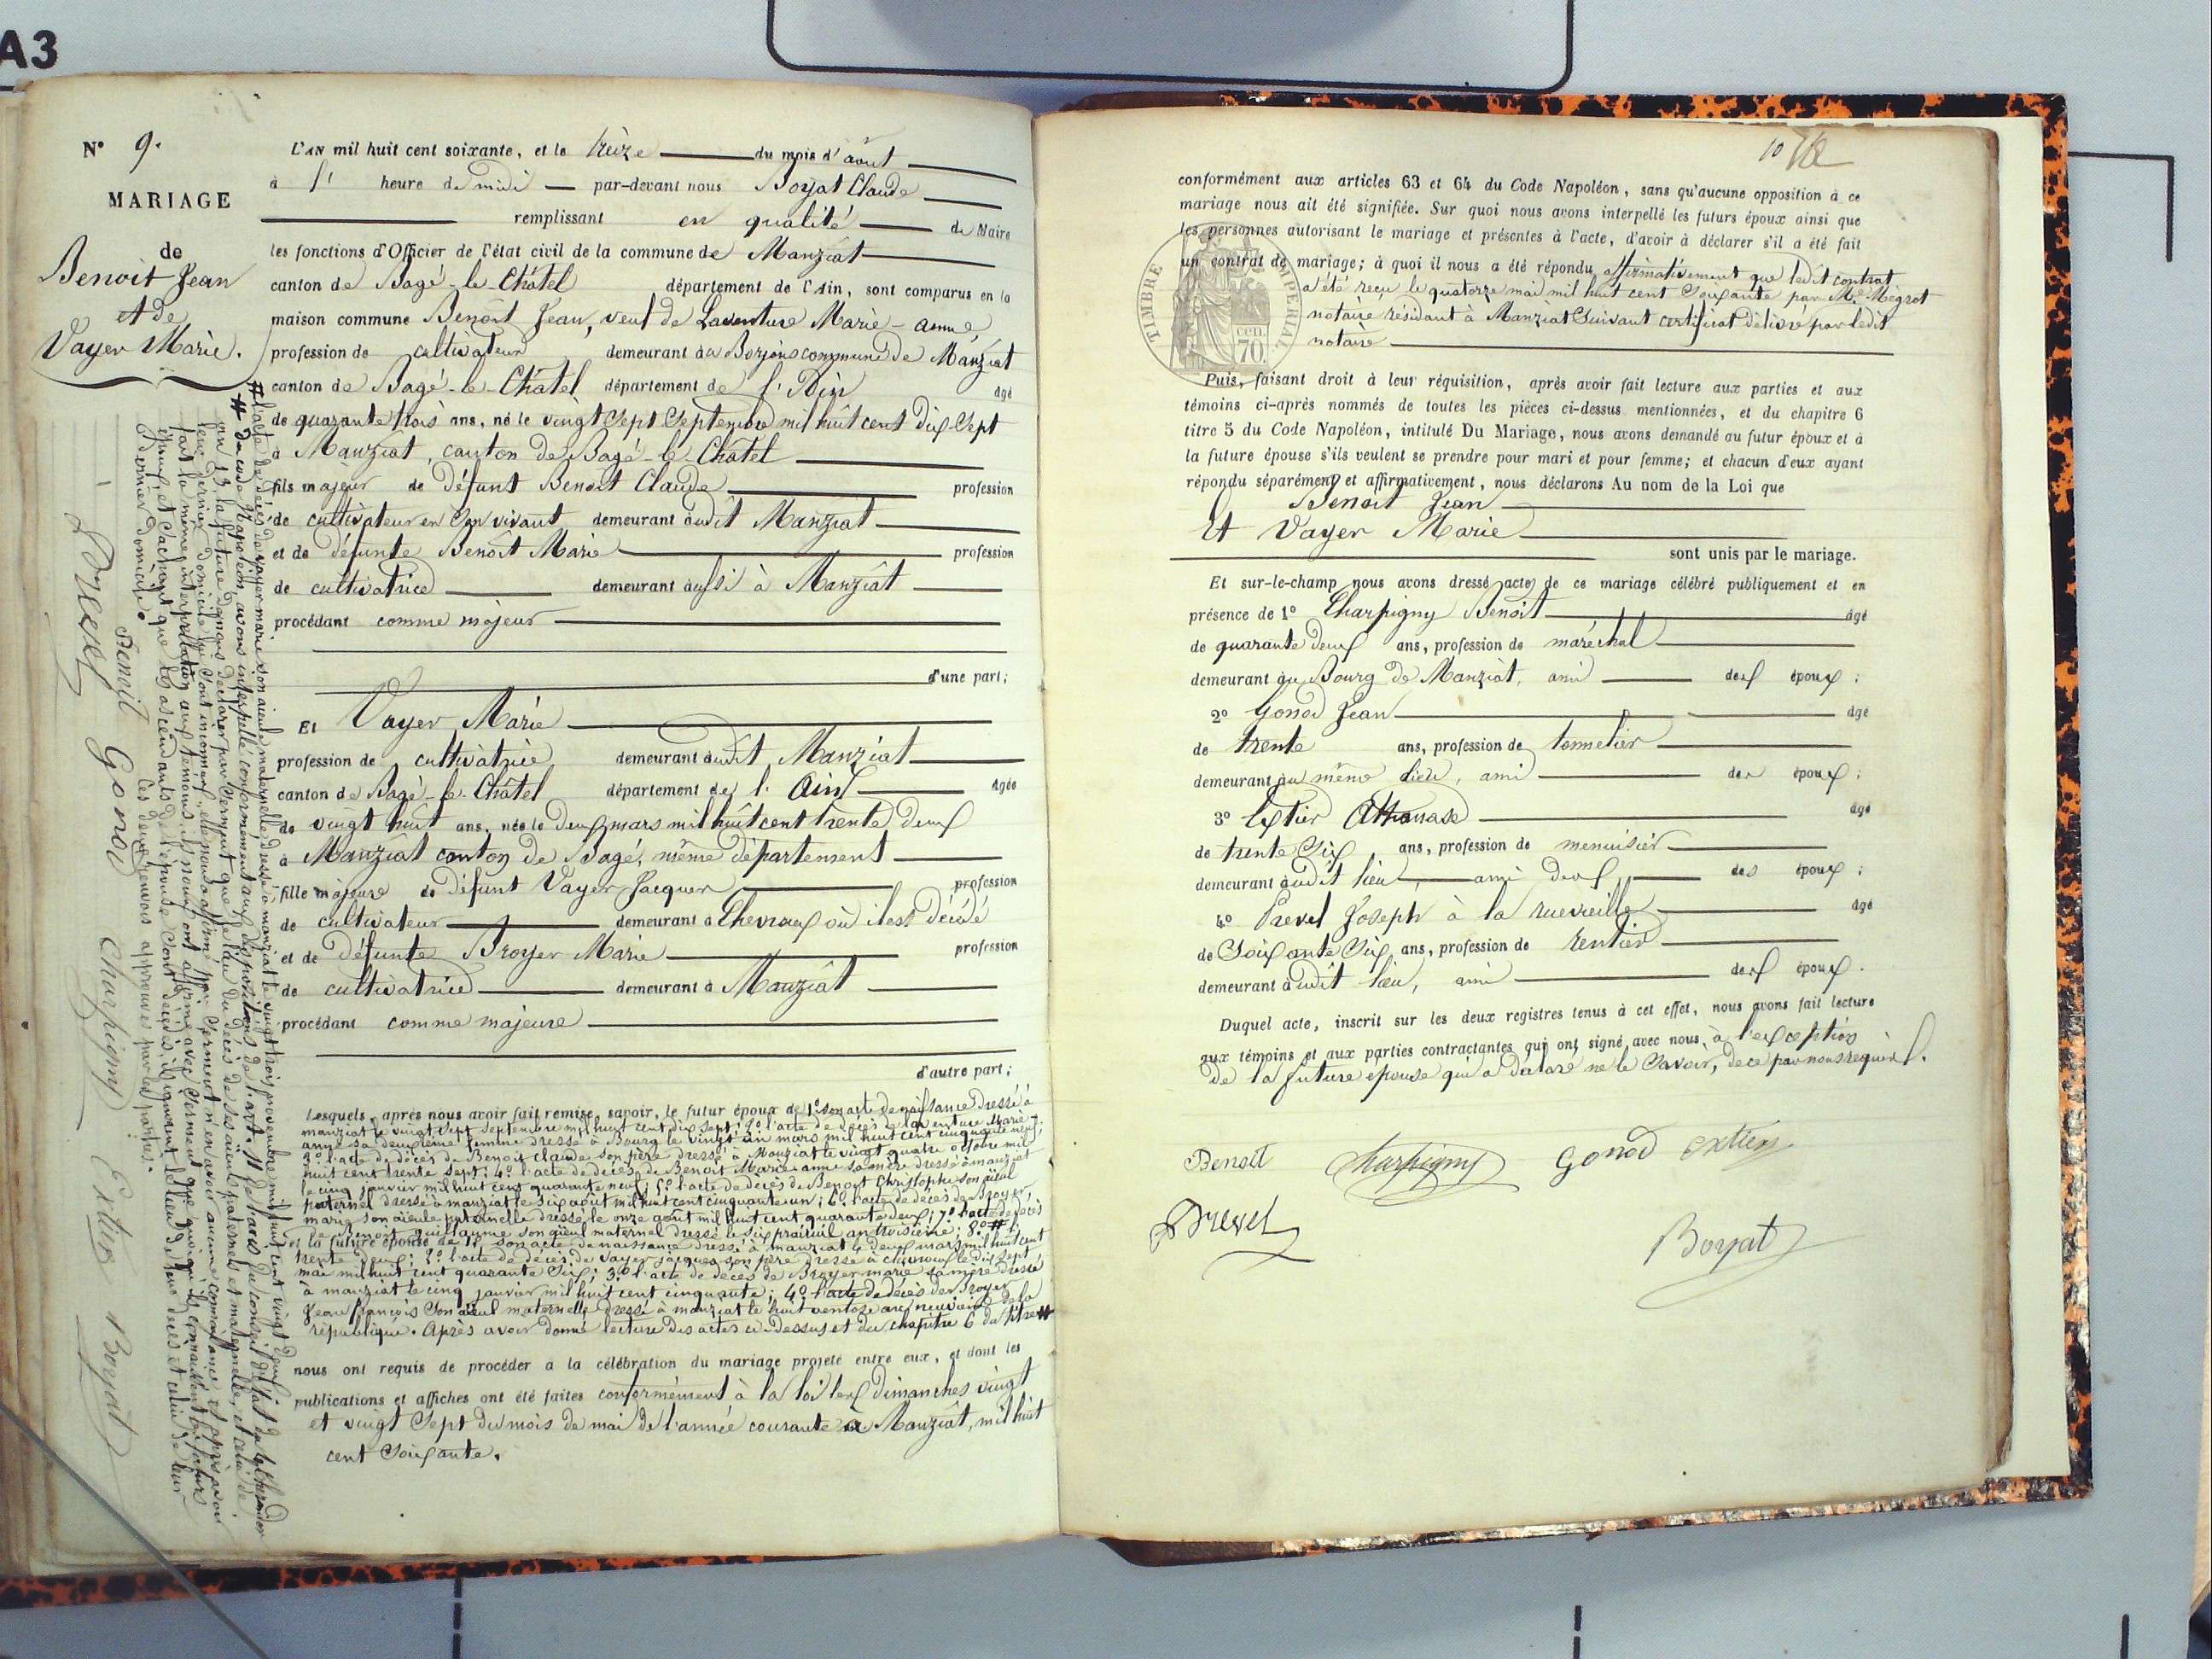 A3
N° 9.
MARIAGE
de
Benoit Jean
et de
Vayer Marie.
L'AN mil huit cent soixante, et le treize du mois d'août
à l' heure de midi par-devant nous Boyat Claude
remplissant en qualité de Maire
les fonctions d'Officier de l'état civil de la commune de Manziat
canton de Bagé-le-Châtel département de l'Ain, sont comparus en la
maison commune Benoit Jean, veuf de Laventure Marie-anne
profession de cultivateur demeurant commune de Manziat
canton de Bagé-le-Châtel département de l'Ain âgé
de quarante trois ans, né le vingt sept septembre mil huit cent dix sept
à Manziat, canton de Bagé-le-Châtel
fils majeur de défunt Benoit Claude profession
de cultivateur en son vivant demeurant audit Manziat
et de défunte Benoît Marie profession
de cultivatrice demeurant aussi à Manziat
procédant comme majeur
d'une part;
Et Vayer Marie
profession de cultivatrice demeurant audit Manziat
canton de Bagé-le-Châtel département de l'Ain âgée
de vingt huit ans, née le deux mars mil huit cent trente deux
à Manziat canton de Bagé, même département
fille majeure de défunt Vayer Jacques profession
de cultivateur demeurant à Chevroux où il est décédé
et de défunte Broyer Marie profession
de cultivatrice demeurant à Manziat
procédant comme majeure
d'autre part;
Lesquels, après nous avoir fait remise, savoir, le futur époux de 1° son acte de naissance dressé à
manziat le vingt sept septembre mil huit cent dix sept; 2° l'acte de décès de Laventure Marie-
anne sa deuxième femme dressé à Bourg le vingt un mars mil huit cent cinquante neuf;
3° l'acte de décès de Benoit Claude son père dressé à Manziat le vingt quatre octobre mil
huit cent trente sept; 4° l'acte de décès de Benoit Marie-anne sa mère dressé à manziat
le cinq janvier mil huit cent quarante neuf; 5° l'acte de décès de Benoit Christophe son aïeul
paternel dressé à manziat le six août mil huit cent cinquante un; 6° l'acte de décès de Broyer
marie son aïeule paternelle dressé le onze août mil huit cent quarante deux; 7° l'acte de décès
de Benoit guillaume son aïeul maternel dressé le six prairial an troisième; 8° #
et la future épouse de 1° son acte de naissance dressé à manziat le deux mars mil huit cent
trente deux; 2° l'acte de décès de Vayer Jacques son père dressé à chevroux le dix sept
mai mil huit cent quarante six; 3° l'acte de décès de Broyer marie sa mère dressé
à manziat le cinq janvier mil huit cent cinquante; 4° l'acte de décès de Broyer
Jean françois son aïeul maternelle dressé à manziat le huit ventose an neuvième de la
république. Après avoir donné lecture des actes ci-dessus et du chapitre 6 du titre #
nous ont requis de procéder à la célébration du mariage projeté entre eux, et dont les
publications et affiches ont été faites conformément à la loi les dimanches vingt
et vingt sept du mois de mai de l'année courante à Manziat, mil huit
cent soixante.
# l'acte de décès de Vayer marie son aïeule maternelle dressé à manziat le vingt trois novembre mil huit cent vingt deux
# du code Napoléon, avons interpellé conformément aux dispositions de l'art. 11 de l'avis du conseil d'état du 4 thermidor
an 13, la future d'avoir à déclarer par serment que le lieu du décès de ses aïeuls paternels et maternelle, et celui de
leur dernier domicile lui sont inconnus, elle nous a affirmé par serment n'en avoir aucune connaissance et après avoir
fait la même interpellation aux témoins, ils nous ont affirmé avec serment que quoiqu'ils connaissent les futurs
époux, et sachant que les ascendants de l'épouse sont décédés, ils ignorent le lieu de leurs décès et celui de leur
dernier domicile.
Ces deux renvois approuvés par les parties.
Benoit Gonod Charpigny Extier Boyat
Prevel
10
conformément aux articles 63 et 64 du Code Napoléon, sans qu'aucune opposition à ce
mariage nous ait été signifiée. Sur quoi nous avons interpellé les futurs époux ainsi que
les personnes autorisant le mariage et présentes à l'acte, d'avoir à déclarer s'il a été fait
un contrat de mariage; à quoi il nous a été répondu affirmativement que ledit contrat
a été reçu le quatorze mai mil huit cent soixante par Me Mégrot
notaire résidant à Manziat suivant certificat délivré par ledit
notaire
TIMBRE IMPERIAL
70 cen.
Puis, faisant droit à leur réquisition, après avoir fait lecture aux parties et aux
témoins ci-après nommés de toutes les pièces ci-dessus mentionnées, et du chapitre 6
titre 5 du Code Napoléon, intitulé Du Mariage, nous avons demandé au futur époux et à
la future épouse s'ils veulent se prendre pour mari et pour femme; et chacun d'eux ayant
répondu séparément et affirmativement, nous déclarons Au nom de la Loi que
Benoit Jean
Et Vayer Marie
sont unis par le mariage.
Et sur-le-champ nous avons dressé acte de ce mariage célébré publiquement et en
présence de 1° Charpigny Benoit âgé
de quarante deux ans, profession de maréchal
demeurant au Bourg de Manziat, ami des époux;
2° Gonod Jean âgé
de trente ans, profession de tonnelier
demeurant au même lieu, ami des époux;
3° Extier Athanase âgé
de trente six ans, profession de menuisier
demeurant audit lieu, ami des époux;
4° Prevel Joseph à la rue vieille âgé
de soixante six ans, profession de rentier
demeurant audit lieu, ami des époux.
Duquel acte, inscrit sur les deux registres tenus à cet effet, nous avons fait lecture
aux témoins et aux parties contractantes qui ont signé avec nous, à l'exception
de la future épouse qui a déclaré ne le savoir, de ce par nous requis.
Benoit Charpigny Gonod Extier
Prevel
Boyat